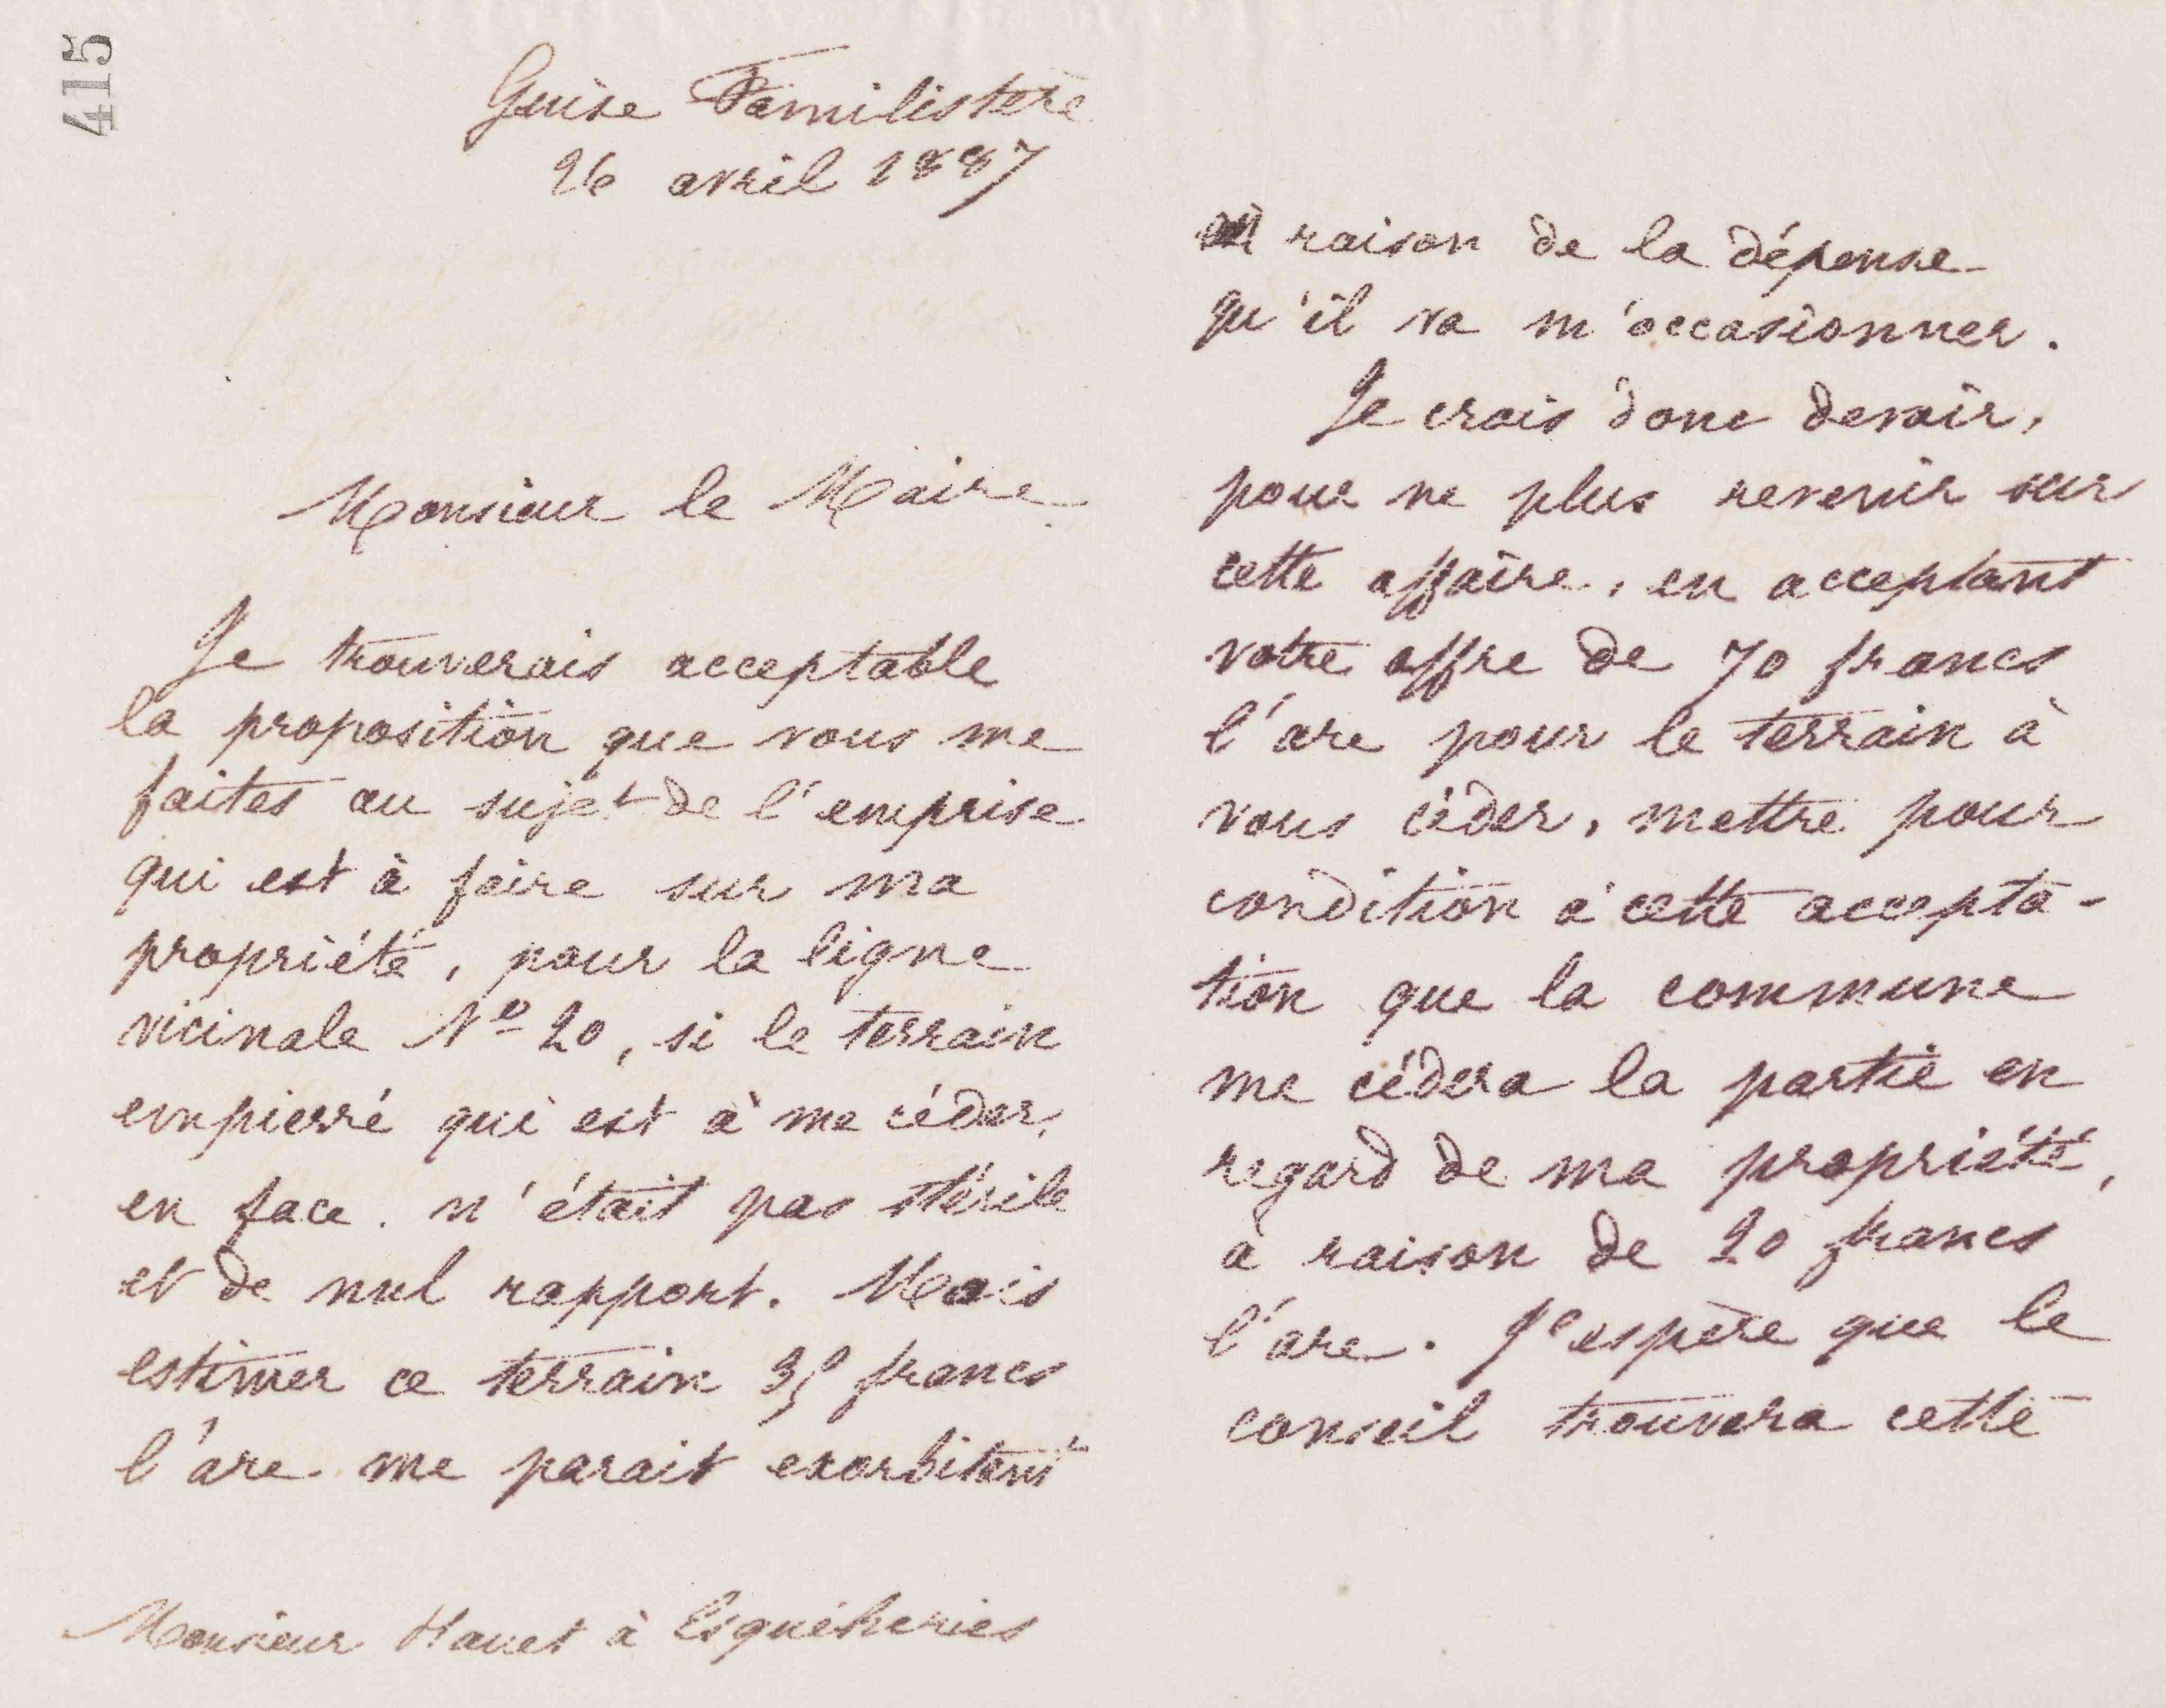 415
Guise Familistère
26 avril 1887
Monsieur le Maire
Je trouverais acceptable
la proposition que vous me
faites au sujet de l'emprise
qui est à faire sur ma
propriété, pour la ligne
vicinale No 20, si le terrain
empierré qui est à me céder,
en face, n'était pas stérile
et de nul rapport. Mais
estimer ce terrain 35 francs
l'are me parait exorbitant
Monsieur Hauet à Esquéheries
raison de la dépense
qu'il va m'occasionner.
Je crois donc devoir,
pour ne plus revenir sur
cette affaire, en acceptant
votre offre de 70 francs
l'are pour le terrain à
vous céder, mettre pour
condition à cette accepta-
tion que la commune
me cédera la partie en
regard de ma propriété,
à raison de 20 francs
l'are. J'espère que le
conseil trouvera cette